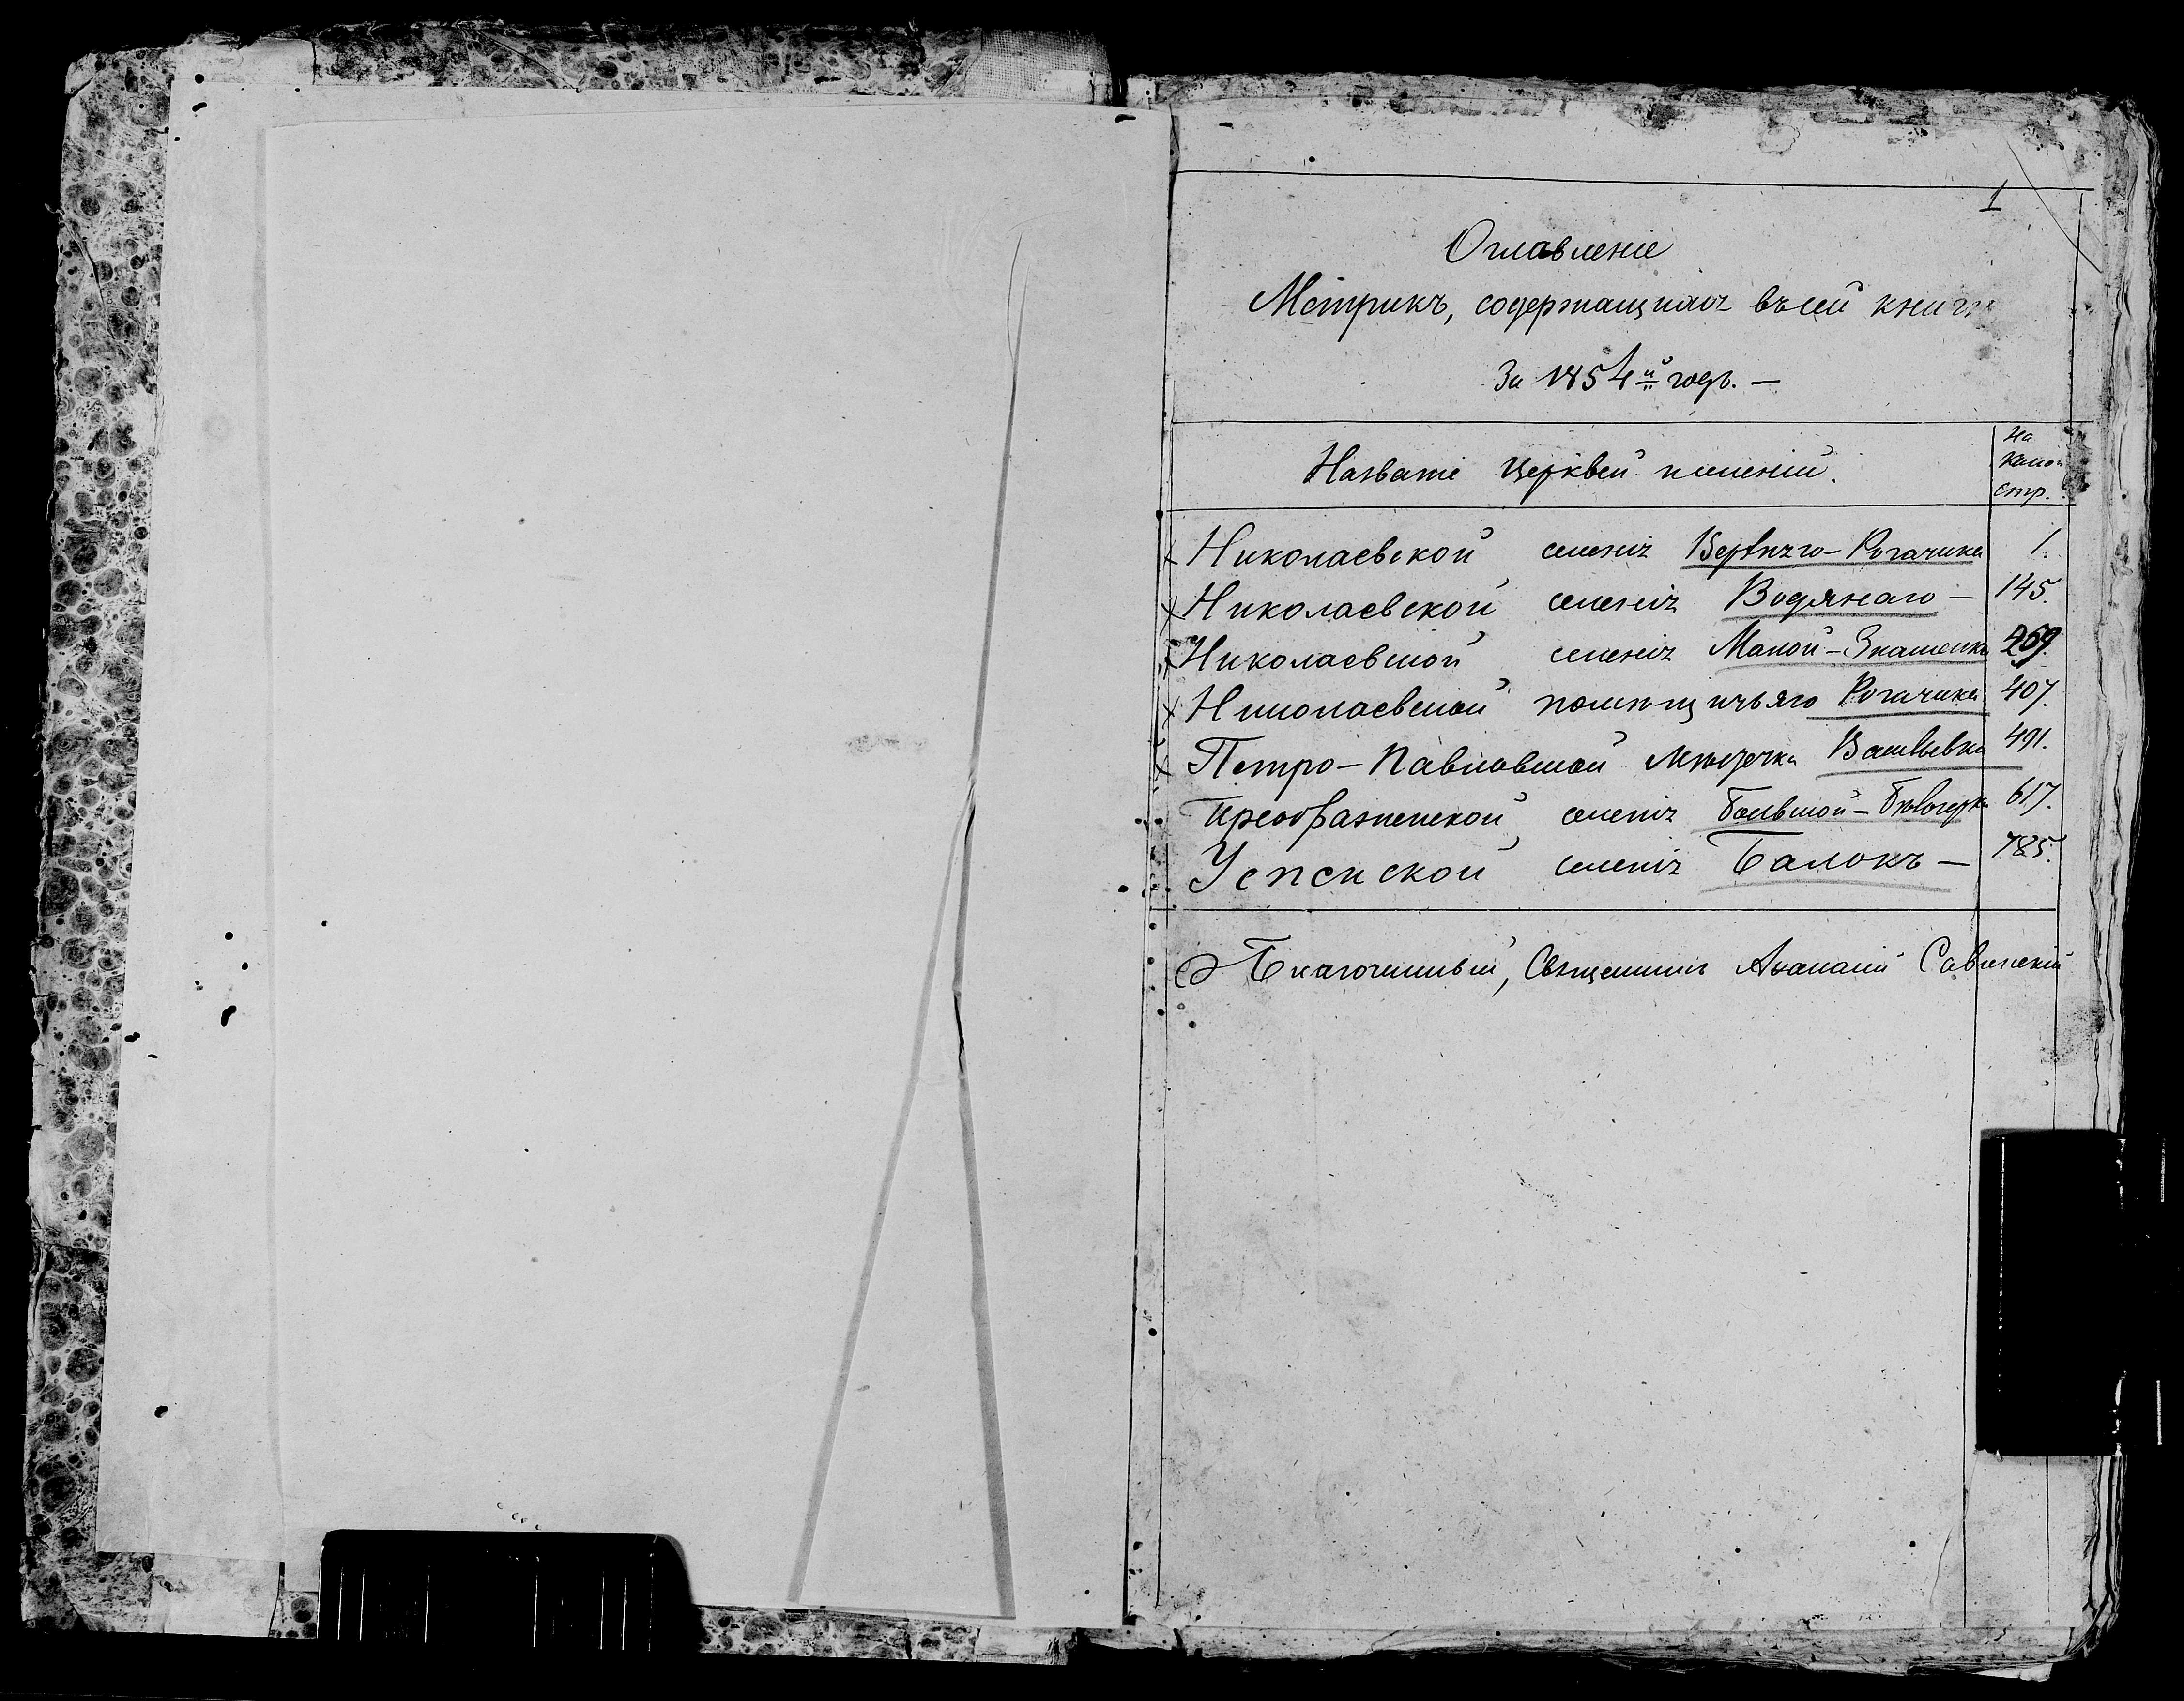 1
Оглавленіе
Метрикъ, содержащихся въ сей книги
За 1854й годъ. —
Названіе церквей и имений.
На
какой
стр.
Николаевской селенія Верхняго-Рогачика 1.
Николаевской селенія Водянаго — 145.
Николаевской селенія Малой-Знаменки 269.
Николаевской помѣщичьяго Рогачика 407.
Петро-Павловской Мѣстечка Васильевки 491.
Преображенской селенія Большой-Бѣлозерки 617.
Успенской селенія Балокъ — 785.
Благочинный, Священникъ Аѳанасій Савинскій